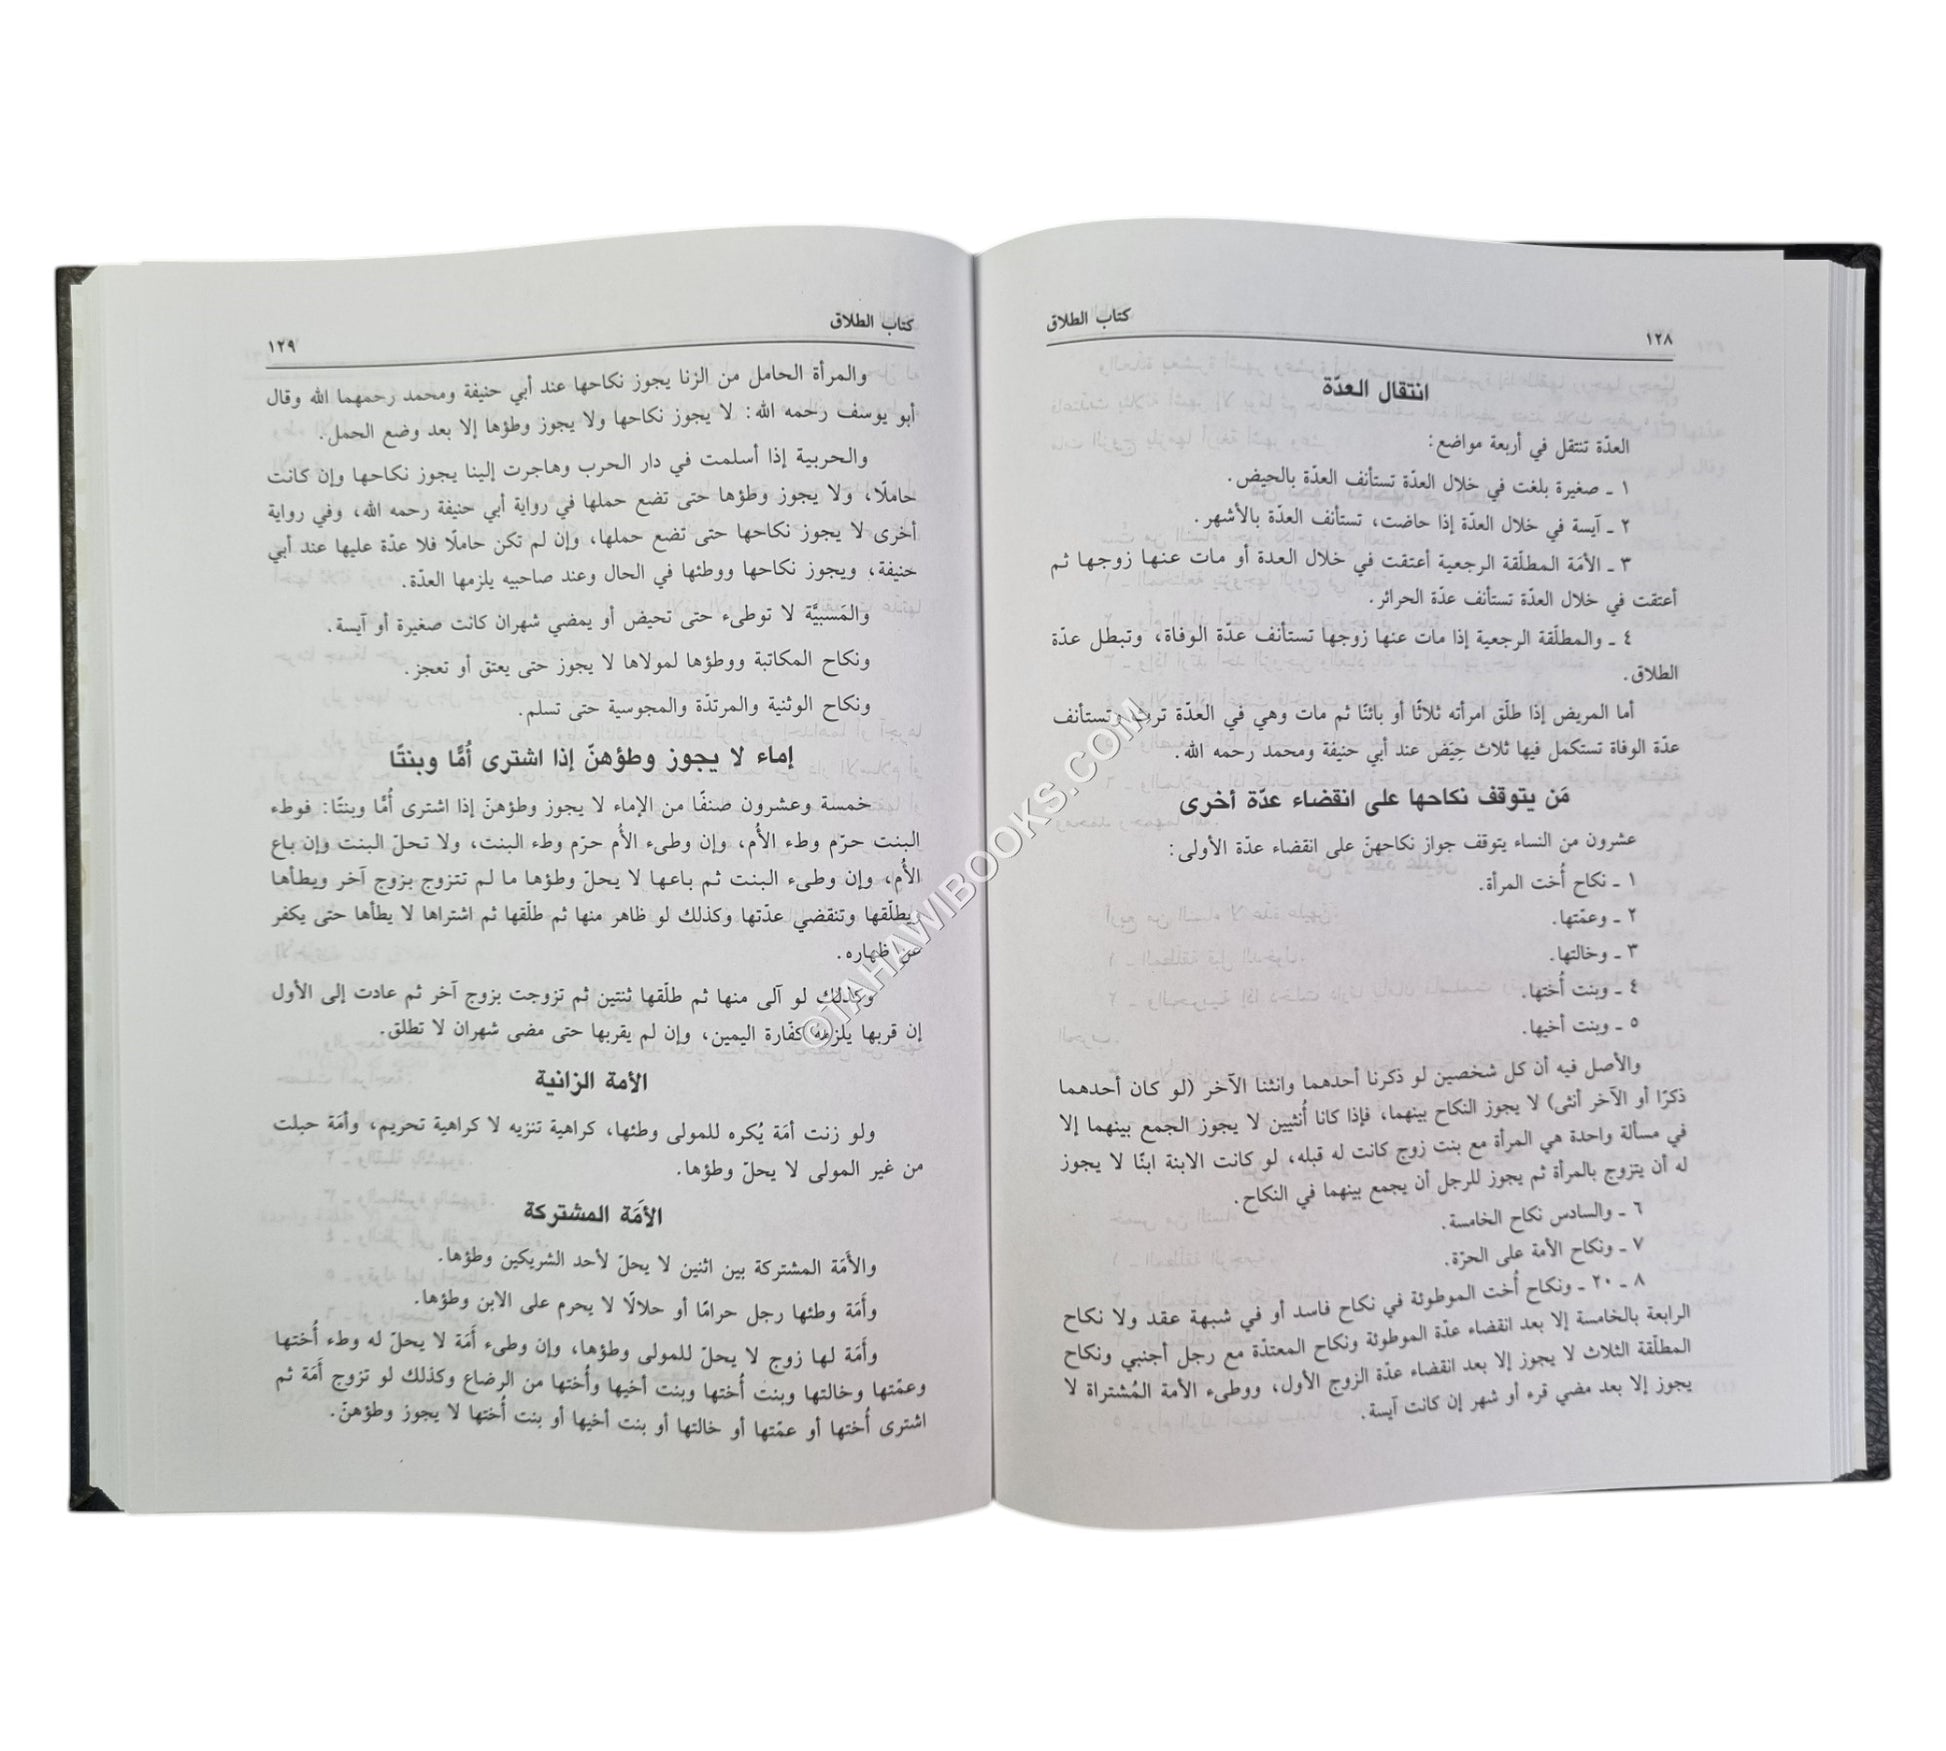 ١٢٨
كتاب الطلاق
انتقال العدّة
العدّة تنتقل في أربعة مواضع:
١ ـ صغيرة بلغت في خلال العدّة تستأنف العدّة بالحيض.
٢ ـ آيسة في خلال العدّة إذا حاضت، تستأنف العدّة بالأشهر.
٣ ـ الأمَة المطلّقة الرجعية أعتقت في خلال العدة أو مات عنها زوجها ثم
أعتقت في خلال العدّة تستأنف عدّة الحرائر.
٤ ـ والمطلّقة الرجعية إذا مات عنها زوجها تستأنف عدّة الوفاة، وتبطل عدّة
الطلاق.
أما المريض إذا طلّق امرأته ثلاثًا أو بائنًا ثم مات وهي في العدّة ترث وتستأنف
عدّة الوفاة تستكمل فيها ثلاث حِيَض عند أبي حنيفة ومحمد رحمه الله.
مَن يتوقف نكاحها على انقضاء عدّة أخرى
عشرون من النساء يتوقف جواز نكاحهنّ على انقضاء عدّة الأولى:
١ ـ نكاح أُخت المرأة.
٢ ـ وعمّتها.
٣ ـ وخالتها.
٤ ـ وبنت أُختها.
٥ ـ وبنت أخيها.
والأصل فيه أن كل شخصين لو ذكرنا أحدهما وانثنا الآخر (لو كان أحدهما
ذكرًا أو الآخر أنثى) لا يجوز النكاح بينهما، فإذا كانا أُنثيين لا يجوز الجمع بينهما إلا
في مسألة واحدة هي المرأة مع بنت زوج كانت له قبله، لو كانت الابنة ابنًا لا يجوز
له أن يتزوج بالمرأة ثم يجوز للرجل أن يجمع بينهما في النكاح.
٦ ـ والسادس نكاح الخامسة.
٧ ـ ونكاح الأمة على الحرّة.
٨ ـ ٢٠ ـ ونكاح أُخت الموطوئة في نكاح فاسد أو في شبهة عقد ولا نكاح
الرابعة بالخامسة إلا بعد انقضاء عدّة الموطوئة ونكاح المعتدّة مع رجل أجنبي ونكاح
المطلّقة الثلاث لا يجوز إلا بعد انقضاء عدّة الزوج الأول، ووطىء الأمة المُشتراة لا
يجوز إلا بعد مضي قرء أو شهر إن كانت آيسة.
كتاب الطلاق
١٢٩
والمرأة الحامل من الزنا يجوز نكاحها عند أبي حنيفة ومحمد رحمهما الله وقال
أبو يوسف رحمه الله: لا يجوز نكاحها ولا يجوز وطؤها إلا بعد وضع الحمل.
والحربية إذا أسلمت في دار الحرب وهاجرت إلينا يجوز نكاحها وإن كانت
حاملًا، ولا يجوز وطؤها حتى تضع حملها في رواية أبي حنيفة رحمه الله، وفي رواية
أخرى لا يجوز نكاحها حتى تضع حملها، وإن لم تكن حاملًا فلا عدّة عليها عند أبي
حنيفة، ويجوز نكاحها ووطئها في الحال وعند صاحبيه يلزمها العدّة.
والمَسبيَّة لا توطىء حتى تحيض أو يمضي شهران كانت صغيرة أو آيسة.
ونكاح المكاتبة ووطؤها لمولاها لا يجوز حتى يعتق أو تعجز.
ونكاح الوثنية والمرتدّة والمجوسية حتى تسلم.
إماء لا يجوز وطؤهنّ إذا اشترى أُمًّا وبنتًا
خمسة وعشرون صنفًا من الإماء لا يجوز وطؤهنّ إذا اشترى أُمًّا وبنتًا: فوطء
البنت حرّم وطء الأم، وإن وطىء الأُم حرّم وطء البنت، ولا تحلّ البنت وإن باع
الأُم، وإن وطىء البنت ثم باعها لا يحلّ وطؤها ما لم تتزوج بزوج آخر ويطأها
ويطلّقها وتنقضي عدّتها وكذلك لو ظاهر منها ثم طلّقها ثم اشتراها لا يطأها حتى يكفر
عن ظهاره.
وكذلك لو آلى منها ثم طلّقها ثنتين ثم تزوجت بزوج آخر ثم عادت إلى الأول
إن قربها يلزمه كفّارة اليمين، وإن لم يقربها حتى مضى شهران لا تطلق.
الأمة الزانية
ولو زنت أمَة يُكره للمولى وطئها، كراهية تنزيه لا كراهية تحريم، وأمَة حبلت
من غير المولى لا يحلّ وطؤها.
الأمَة المشتركة
والأَمَة المشتركة بين اثنين لا يحلّ لأحد الشريكين وطؤها.
وأَمَة وطئها رجل حرامًا أو حلالًا لا يحرم على الابن وطؤها.
وأَمَة لها زوج لا يحلّ للمولى وطؤها، وإن وطىء أَمَة لا يحلّ له وطء أُختها
وعمّتها وخالتها وبنت أُختها وبنت أخيها وأُختها من الرضاع وكذلك لو تزوج أَمَة ثم
اشترى أُختها أو عمّتها أو خالتها أو بنت أخيها أو بنت أُختها لا يجوز وطؤهنّ.
©TAHAWIBOOKS.COM